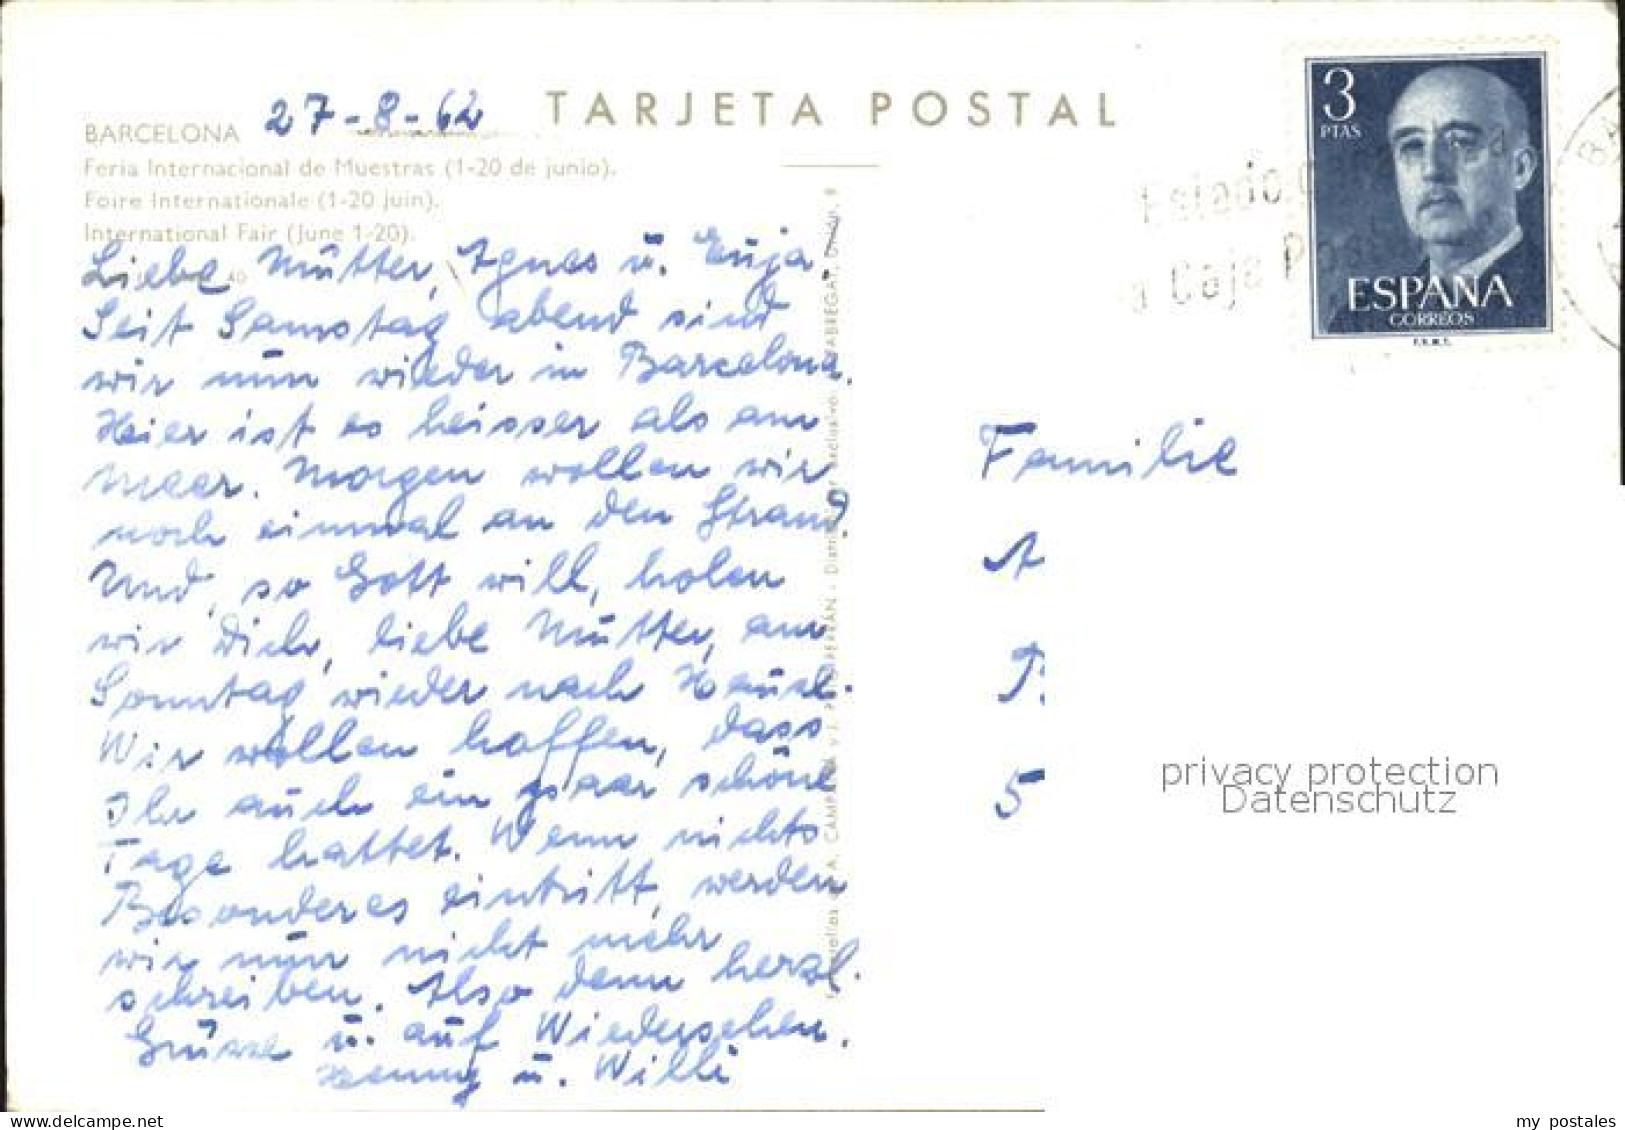 TARJETA POSTAL
BARCELONA
27-8-62
Feria Internacional de Muestras (1-20 de junio).
Foire Internationale (1-20 juin).
International Fair (June 1-20).
Liebe Mutter, Agnes u.
Seit Samstag abend sind
wir nun wieder in Barcelona.
Hier ist es heisser als am
Meer. Morgen wollen wir
noch einmal an den Strand.
Und, so Gott will, holen
wir Dich, liebe Mutter, am
Sonntag wieder nach Hause.
Wir wollen hoffen, dass
Ihr auch ein paar schöne
Tage hattet. Wenn nichts
Besonderes eintritt, werden
wir nun nicht mehr
schreiben. Also denn herzl.
Grüsse u. auf Wiedersehen.
Henny u. Willi
3
PTAS
ESPAÑA
CORREOS
F.N.M.T.
Familie
A
P.
5
privacy protection
Datenschutz
delcampe.net
my_postales